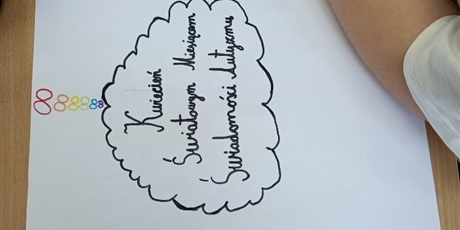 Kwiecień
Światowym Miesiącem
Świadomości Autyzmu